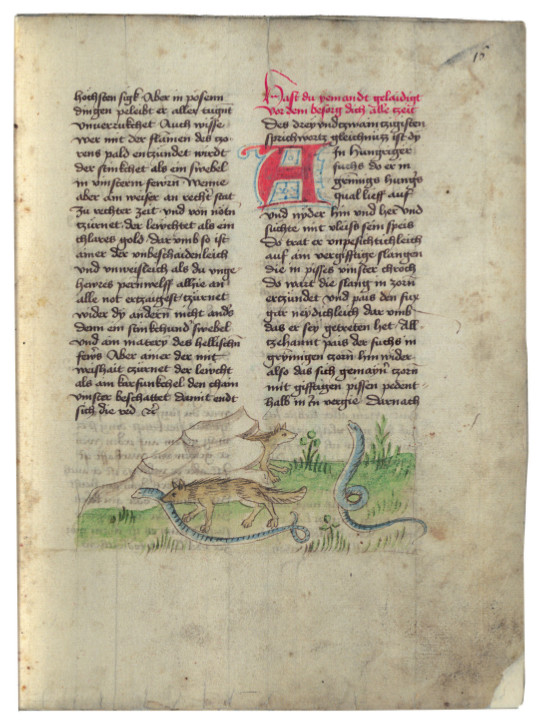 15
hochsten sigk Aber in posenn
dingen peleibt er aller tugnt
vnuerrukchet Auch wisse
wer mit der flamen des czo
rens pald entzundet wirdt
der stinkchet als ein swebel
in vnserm fewrn Wenne
aber am weiser an recht stat
zu rechter zeit vnd von notn
tzurnet der lewchtet als ein
chlares gold darvmb so ist
amer der vnbeschaidenleich
vnd vnweisleich als du vnge
hewres pernwelff allhie an
alle not ertzaigest tzurnet
wider dy andern nicht ands
denn ein stinkchund swebel
vnd am matery des hellischn
fewrs Aber amer der mit
weishait tzurnet der lewcht
als am karfunkchel den chain
vinster beschattet Damit endt
sich die red
Hast du yemandt gelaidigt
Vor dem besorg dich alle tzeit
Des drey vndtzwaintzigisten
sprichwortz gleichnuzz ist dy
Ain hungriger
fuchs do er in
gennigs hungs
qual lieff auf
vnd nyder hin vnd her vnd
suchte mit vleiss sein speis
Do trat er vnpesichtichleich
auf am vergifftige slangen
die in pisses vinster chroch
do wart die slang in zorn
entzundet vnd pais den fux
gar neydichleich dar vmb
das er sey getreten het All
tzehannt pais der fuchs in
grymmigen zorn hin wider
also das sich gemayn tzorn
mit gifftigen pissen pedent
halb in vergie Darnach